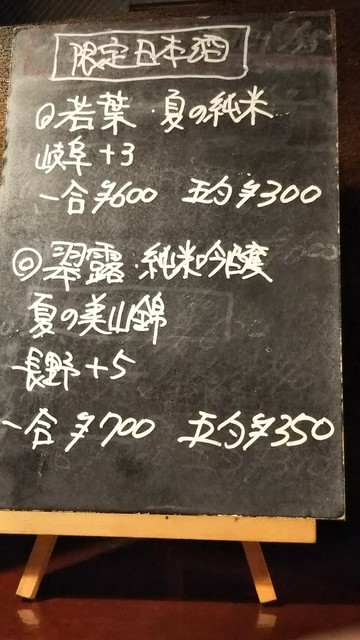 限定日本酒
◎若葉・夏の純米
岐阜+3
一合¥600 五勺¥300
◎翠露・純米吟醸
夏の美山錦
長野+5
一合¥700 五勺¥350